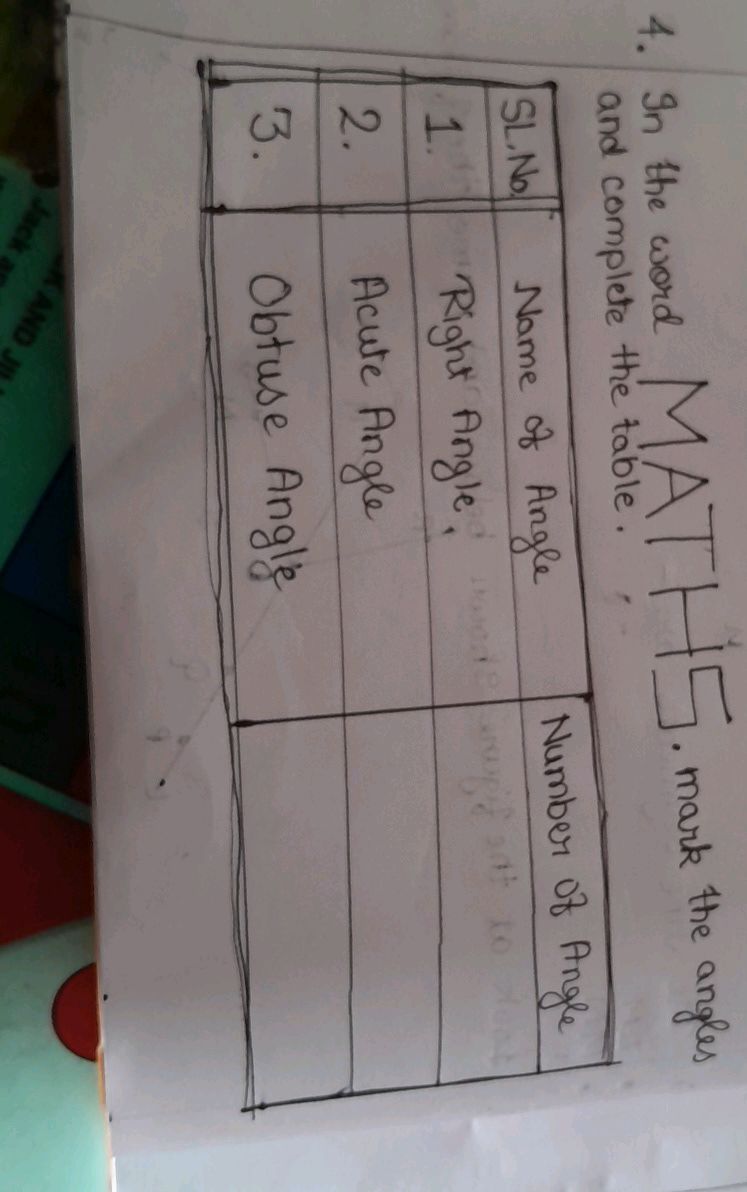 4. In the word MATHS. mark the angles
and complete the table.
SL.No. Name of Angle Number of Angle
1. Right Angle.
2. Acute Angle
3. Obtuse Angle